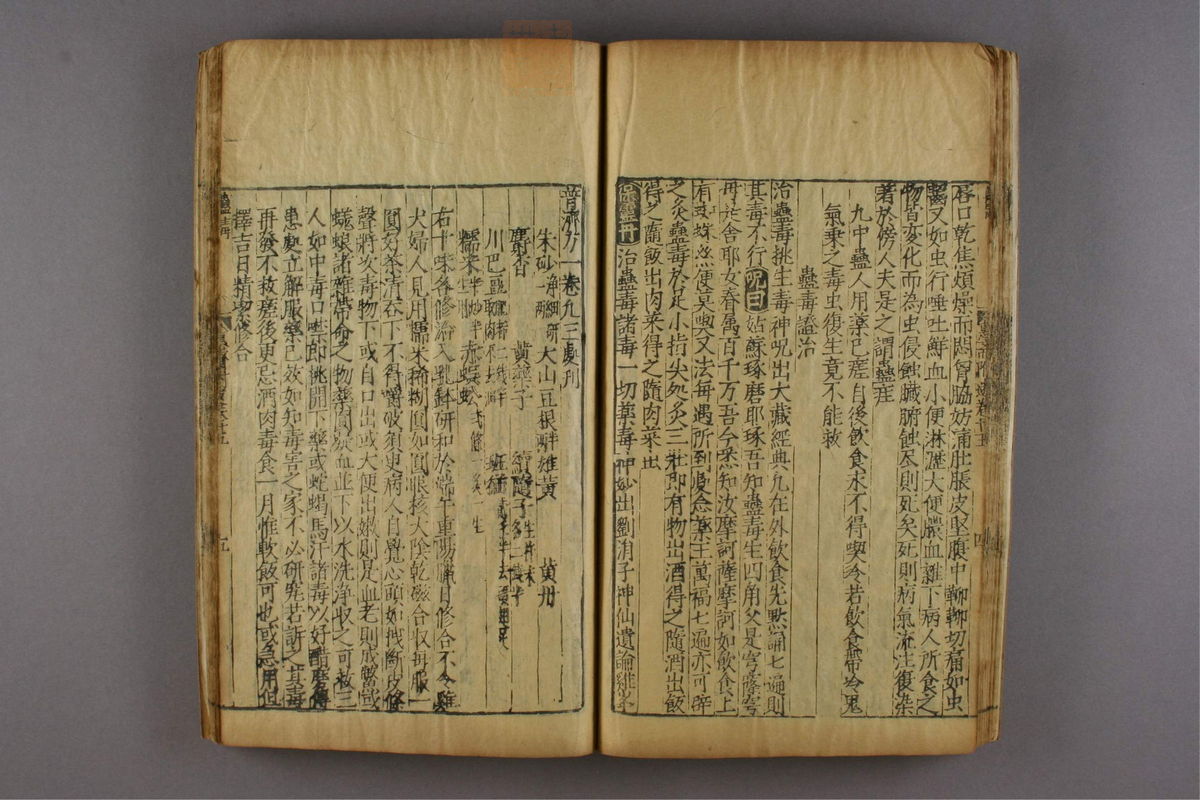 唇口乾焦煩燥而悶胷脇妨痛肚脹皮堅腹中𫆏切痛如虫
齧又如虫行唾吐鮮血小便淋瀝大便膿血雜下病人所食之
物皆変化而為虫侵蝕臓腑蝕尽則死矣死則病氣流注復染
著於傍人夫是之謂蠱疰
凡中蠱人用藥已瘥自後飲食永不得喫冷若飲食帶冷鬼
氣乗之毒虫復生竟不能救
蠱毒證治
治蠱毒挑生毒神呪出大藏經典凡在外飲食先黙誦七遍則
其毒不行呪曰姑蘇琢磨耶琢吾知蠱毒生四角父是穹窿穹
母是舍耶女眷属百千万吾今悉知汝摩訶薩摩訶如飲食上
有蛛絲便莫喫又法每遇所到處念藥王萬福七遍亦可辟
之灸蠱毒於足小指尖处灸三壮即有物出酒得之隨酒出飯
得之隨飯出肉菜得之隨肉菜出
保靈丹 治蠱毒諸毒一切藥毒神妙出劉涓子神仙遺論
普濟方一卷九三慶刋
朱砂 淨細研一兩 大山豆根 雄黃 黃丹
麝香 黃藥子 續隨子
川巴豆 取肉不去油 斑猫
糯米 半炒半生 赤蜈蚣
右十味各修治入乳鉢研和於端午重陽臘日修合不令雞
犬婦人見用糯米稀糊圓如圓眼核大陰乾磁合收每服一
圓好茶清吞下不得嚼破須臾病人自覺心頭如拽断皮條
聲將次毒物下或自口出或大便出嫩則是血老則成鱉或
蜣蜋諸雜帶命之物藥圓凝血並下以水洗淨收之可救三
人如中毒口噤即挑開下藥或蛇蝎馬汗諸毒以好醋磨傅
患處立解服藥已效如知毒害之家不必研究若訴之其毒
再發不救瘥後更忌酒肉毒食一月惟軟飯可也或急用但
擇吉日精潔修合